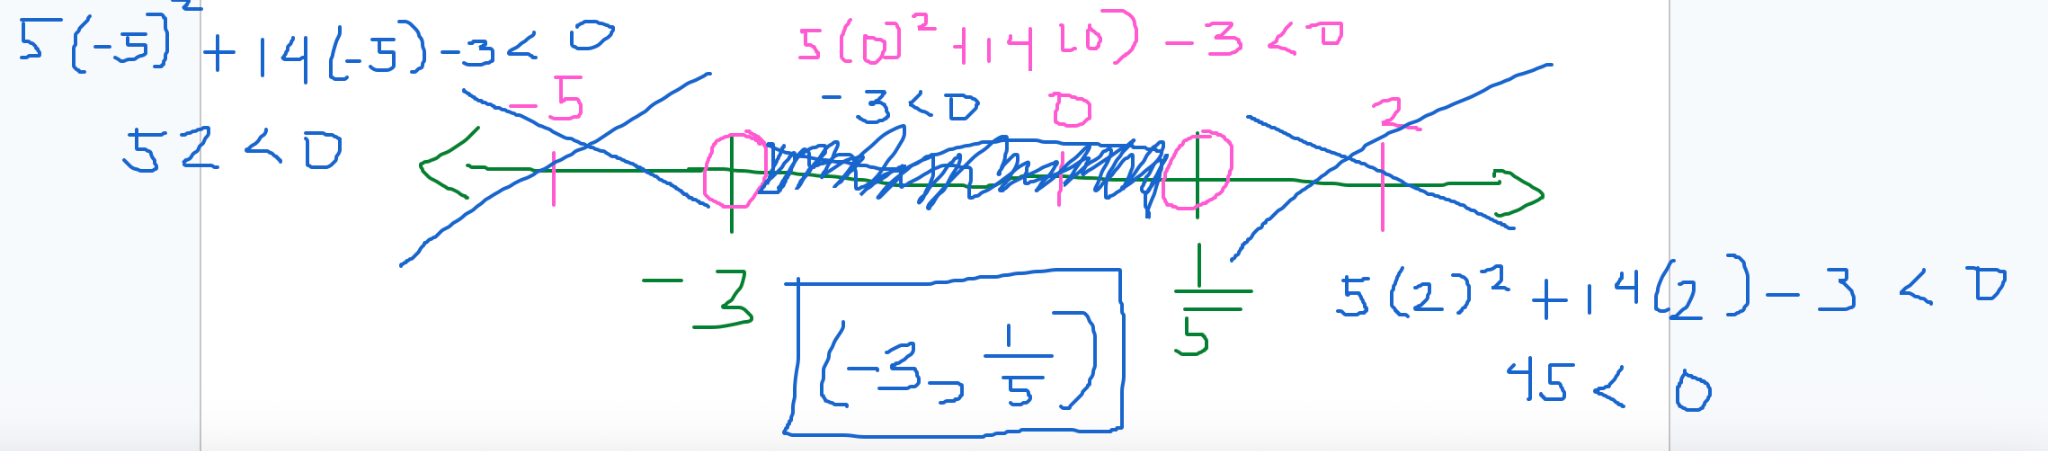 5(-5)² + 14(-5) - 3 < 0
52 < 0
5(0)² + 14(0) - 3 < 0
-3 < 0
-5
0
2
-3
1/5
(-3, 1/5)
5(2)² + 14(2) - 3 < 0
45 < 0